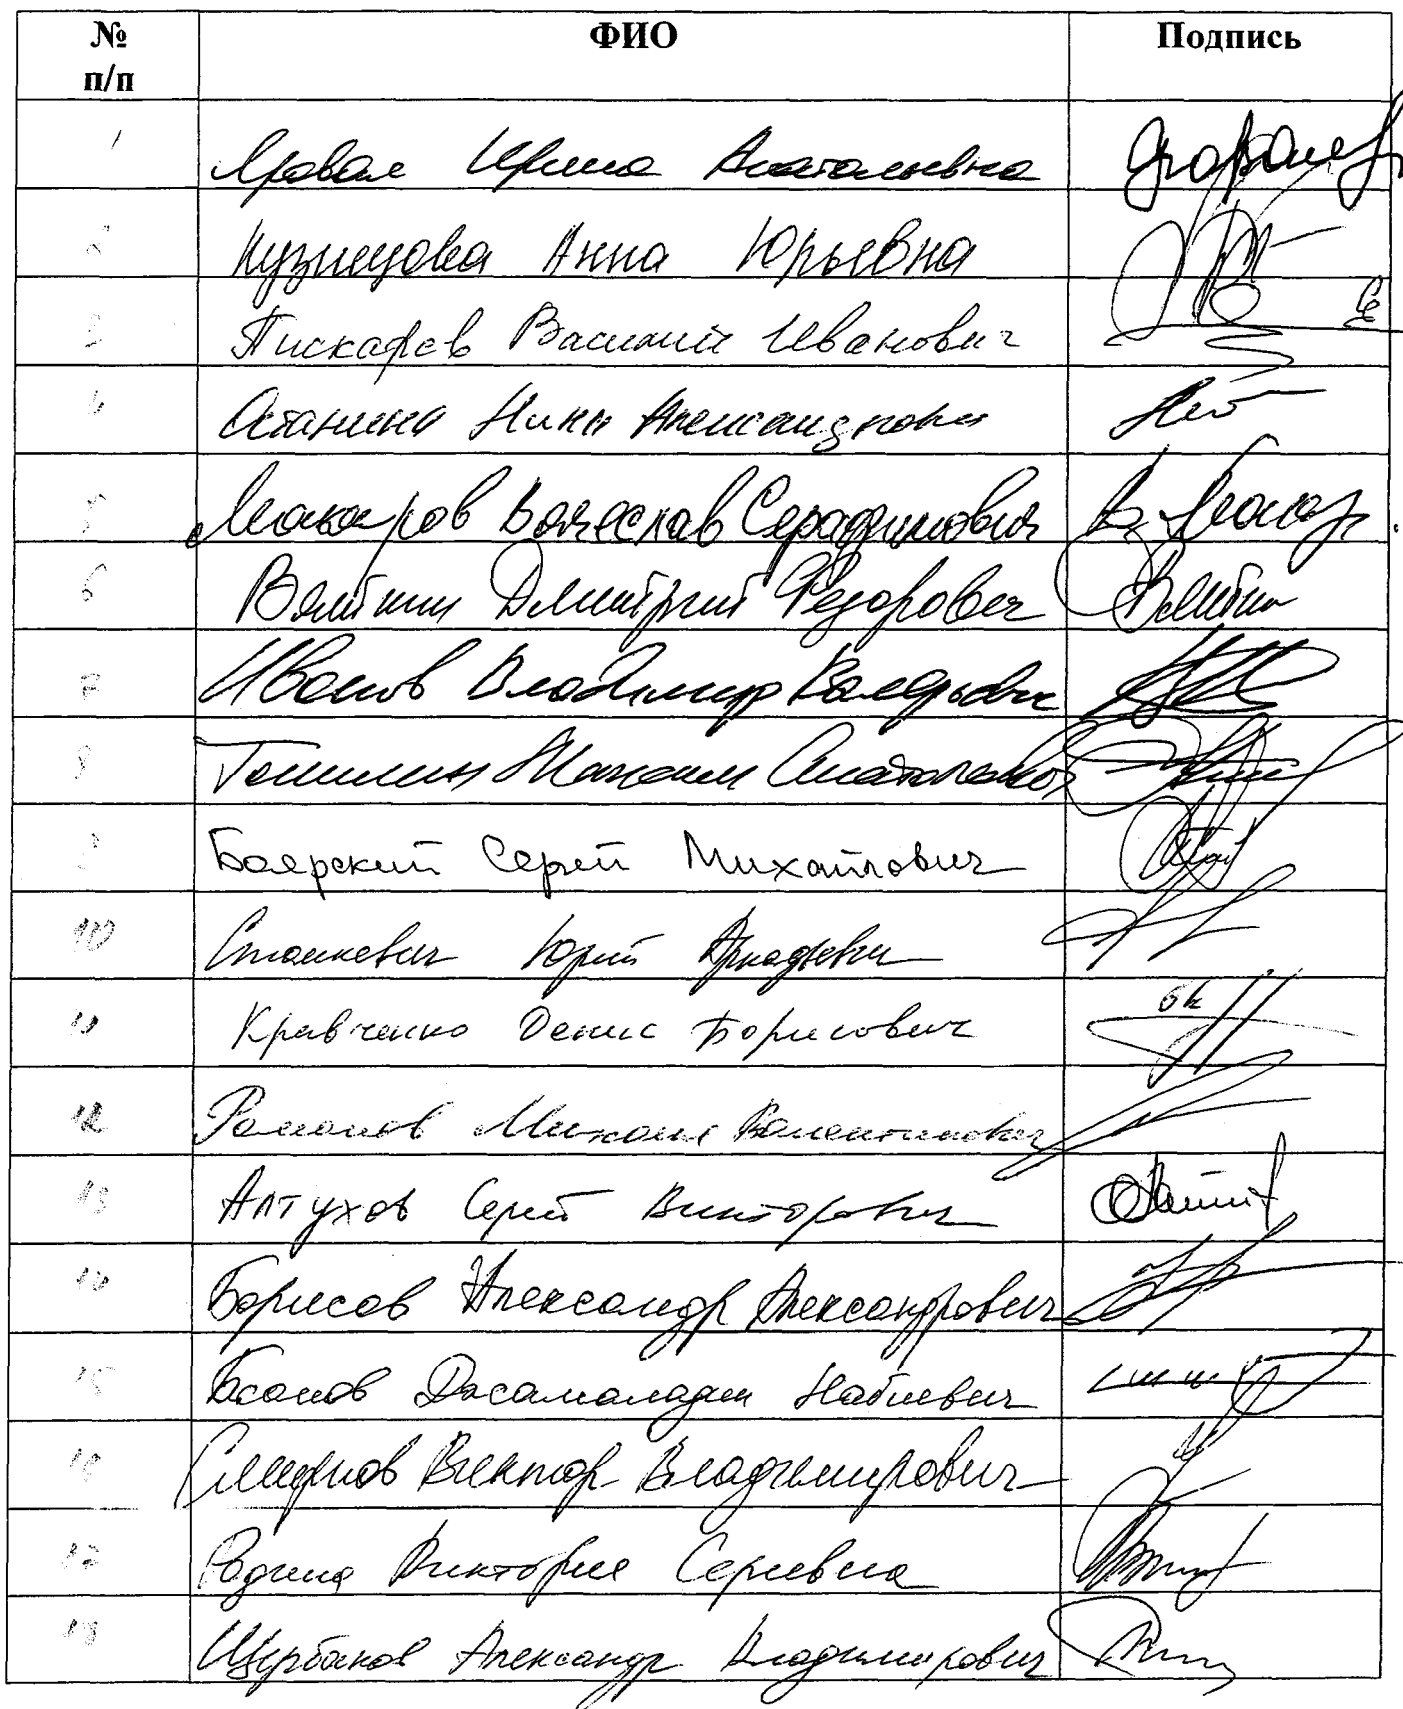 № п/п ФИО Подпись
1 Яровая Ирина Анатольевна
2 Кузнецова Анна Юрьевна
3 Пискарев Василий Иванович
4 Останина Нина Александровна
5 Макаров Вячеслав Серафимович В. Макар.
6 Вяткин Дмитрий Федорович Вяткин
7 Иванов Владимир Валерьевич
8 Топилин Максим Анатольевич
9 Боярский Сергей Михайлович
10 Станкевич Юрий Аркадьевич
11 Кравченко Денис Борисович
12 Романов Михаил Валентинович
13 Алтухов Сергей Викторович
14 Борисов Александр Александрович
15 Гасанов Джамаладин Набиевич
16 Смирнов Виктор Владимирович
17 Родина Виктория Сергеевна
18 Щербаков Александр Владимирович